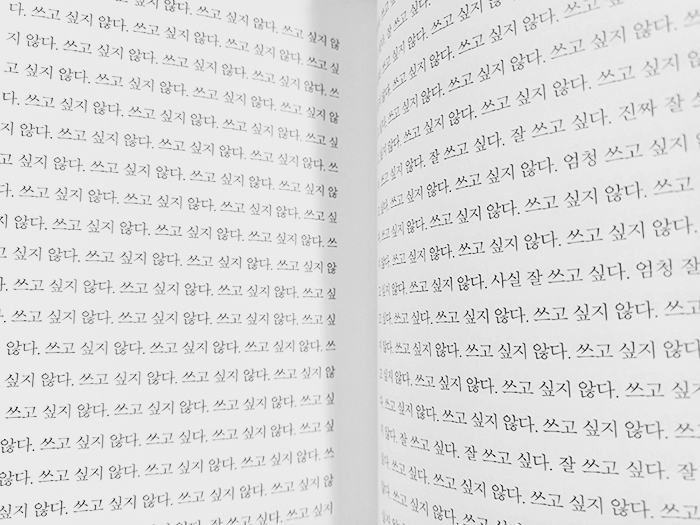 쓰고 싶지 않다. 쓰고 싶지 않
다. 쓰고 싶지 않다. 쓰고 싶지 않다. 쓰고 싶지 않다. 쓰고 싶
지 않다. 쓰고 싶지 않다. 쓰고 싶지 않다. 쓰고 싶지 않다. 쓰
고 싶지 않다. 쓰고 싶지 않다. 쓰고 싶지 않다. 쓰고 싶지 않
다. 쓰고 싶지 않다. 쓰고 싶지 않다. 쓰고 싶지 않다. 쓰고 싶
지 않다. 쓰고 싶지 않다. 쓰고 싶지 않다. 쓰고 싶지 않다. 쓰
고 싶지 않다. 쓰고 싶지 않다. 쓰고 싶지 않다. 쓰고 싶지 않
다. 쓰고 싶지 않다. 쓰고 싶지 않다. 쓰고 싶지 않다. 쓰고 싶
지 않다. 쓰고 싶지 않다. 쓰고 싶지 않다. 쓰고 싶지 않다. 쓰
고 싶지 않다. 쓰고 싶지 않다. 쓰고 싶지 않다. 쓰고 싶지 않
다. 쓰고 싶지 않다. 쓰고 싶지 않다. 쓰고 싶지 않다. 쓰고 싶
다. 쓰고 싶지 않다. 쓰고 싶지 않다. 쓰고 싶지 않다.
않다. 쓰고 싶지 않다. 쓰고 싶지 않다. 쓰고 싶지 않다. 쓰
싶지 않다. 쓰고 싶지 않다. 쓰고 싶지 않다. 쓰고 싶지 않
쓰고 싶지 않다. 쓰고 싶지 않다. 쓰고 싶지 않다. 쓰고 싶
않다. 쓰고 싶지 않다. 쓰고 싶지 않다. 쓰고 싶지 않다.
않다. 쓰고 싶지 않다. 쓰고 싶지 않다. 쓰고 싶지 않다. 쓰
싶지 않다. 쓰고 싶지 않다. 쓰고 싶지 않다. 쓰고 싶지 않
않다. 잘 쓰고 싶다. 쓰고 싶
쓰고 싶지 않다.
잘 쓰고 싶다. 쓰고 싶지 않다. 쓰고
쓰고 싶지 않다. 쓰고 싶지 않다. 쓰고 싶지
쓰고 싶지 않다. 쓰고 싶지 않다. 쓰고 싶지 않
쓰고 싶지 않다. 잘 쓰고 싶다. 잘 쓰고 싶다. 진짜 잘 쓰
쓰고 싶지 않다. 쓰고 싶지 않다. 엄청 쓰고 싶지
쓰고 싶지 않다. 쓰고 싶지 않다. 쓰고 싶지 않다. 쓰고
쓰고 싶지 않다. 쓰고 싶지 않다. 쓰고 싶지 않다.
고 싶지 않다. 사실 잘 쓰고 싶다. 엄청 잘
쓰고 싶지 않다. 쓰고 싶지 않다. 쓰고 싶지 않다.
지 않다. 쓰고 싶지 않다. 쓰고 싶지 않다. 쓰고 싶지 않다
쓰고 싶지 않다. 쓰고 싶지 않다. 쓰고 싶지 않다. 쓰고
쓰고 싶지 않다. 쓰고 싶지 않다. 쓰고 싶지 않다. 쓰
잘 쓰고 싶다. 잘 쓰고 싶다. 잘 쓰고 싶다. 잘
쓰고 싶지 않다. 쓰고 싶지 않다. 쓰고 싶지
쓰고 싶지 않다. 쓰고 싶지 않다. 쓰고
쓰고 싶지 않다.